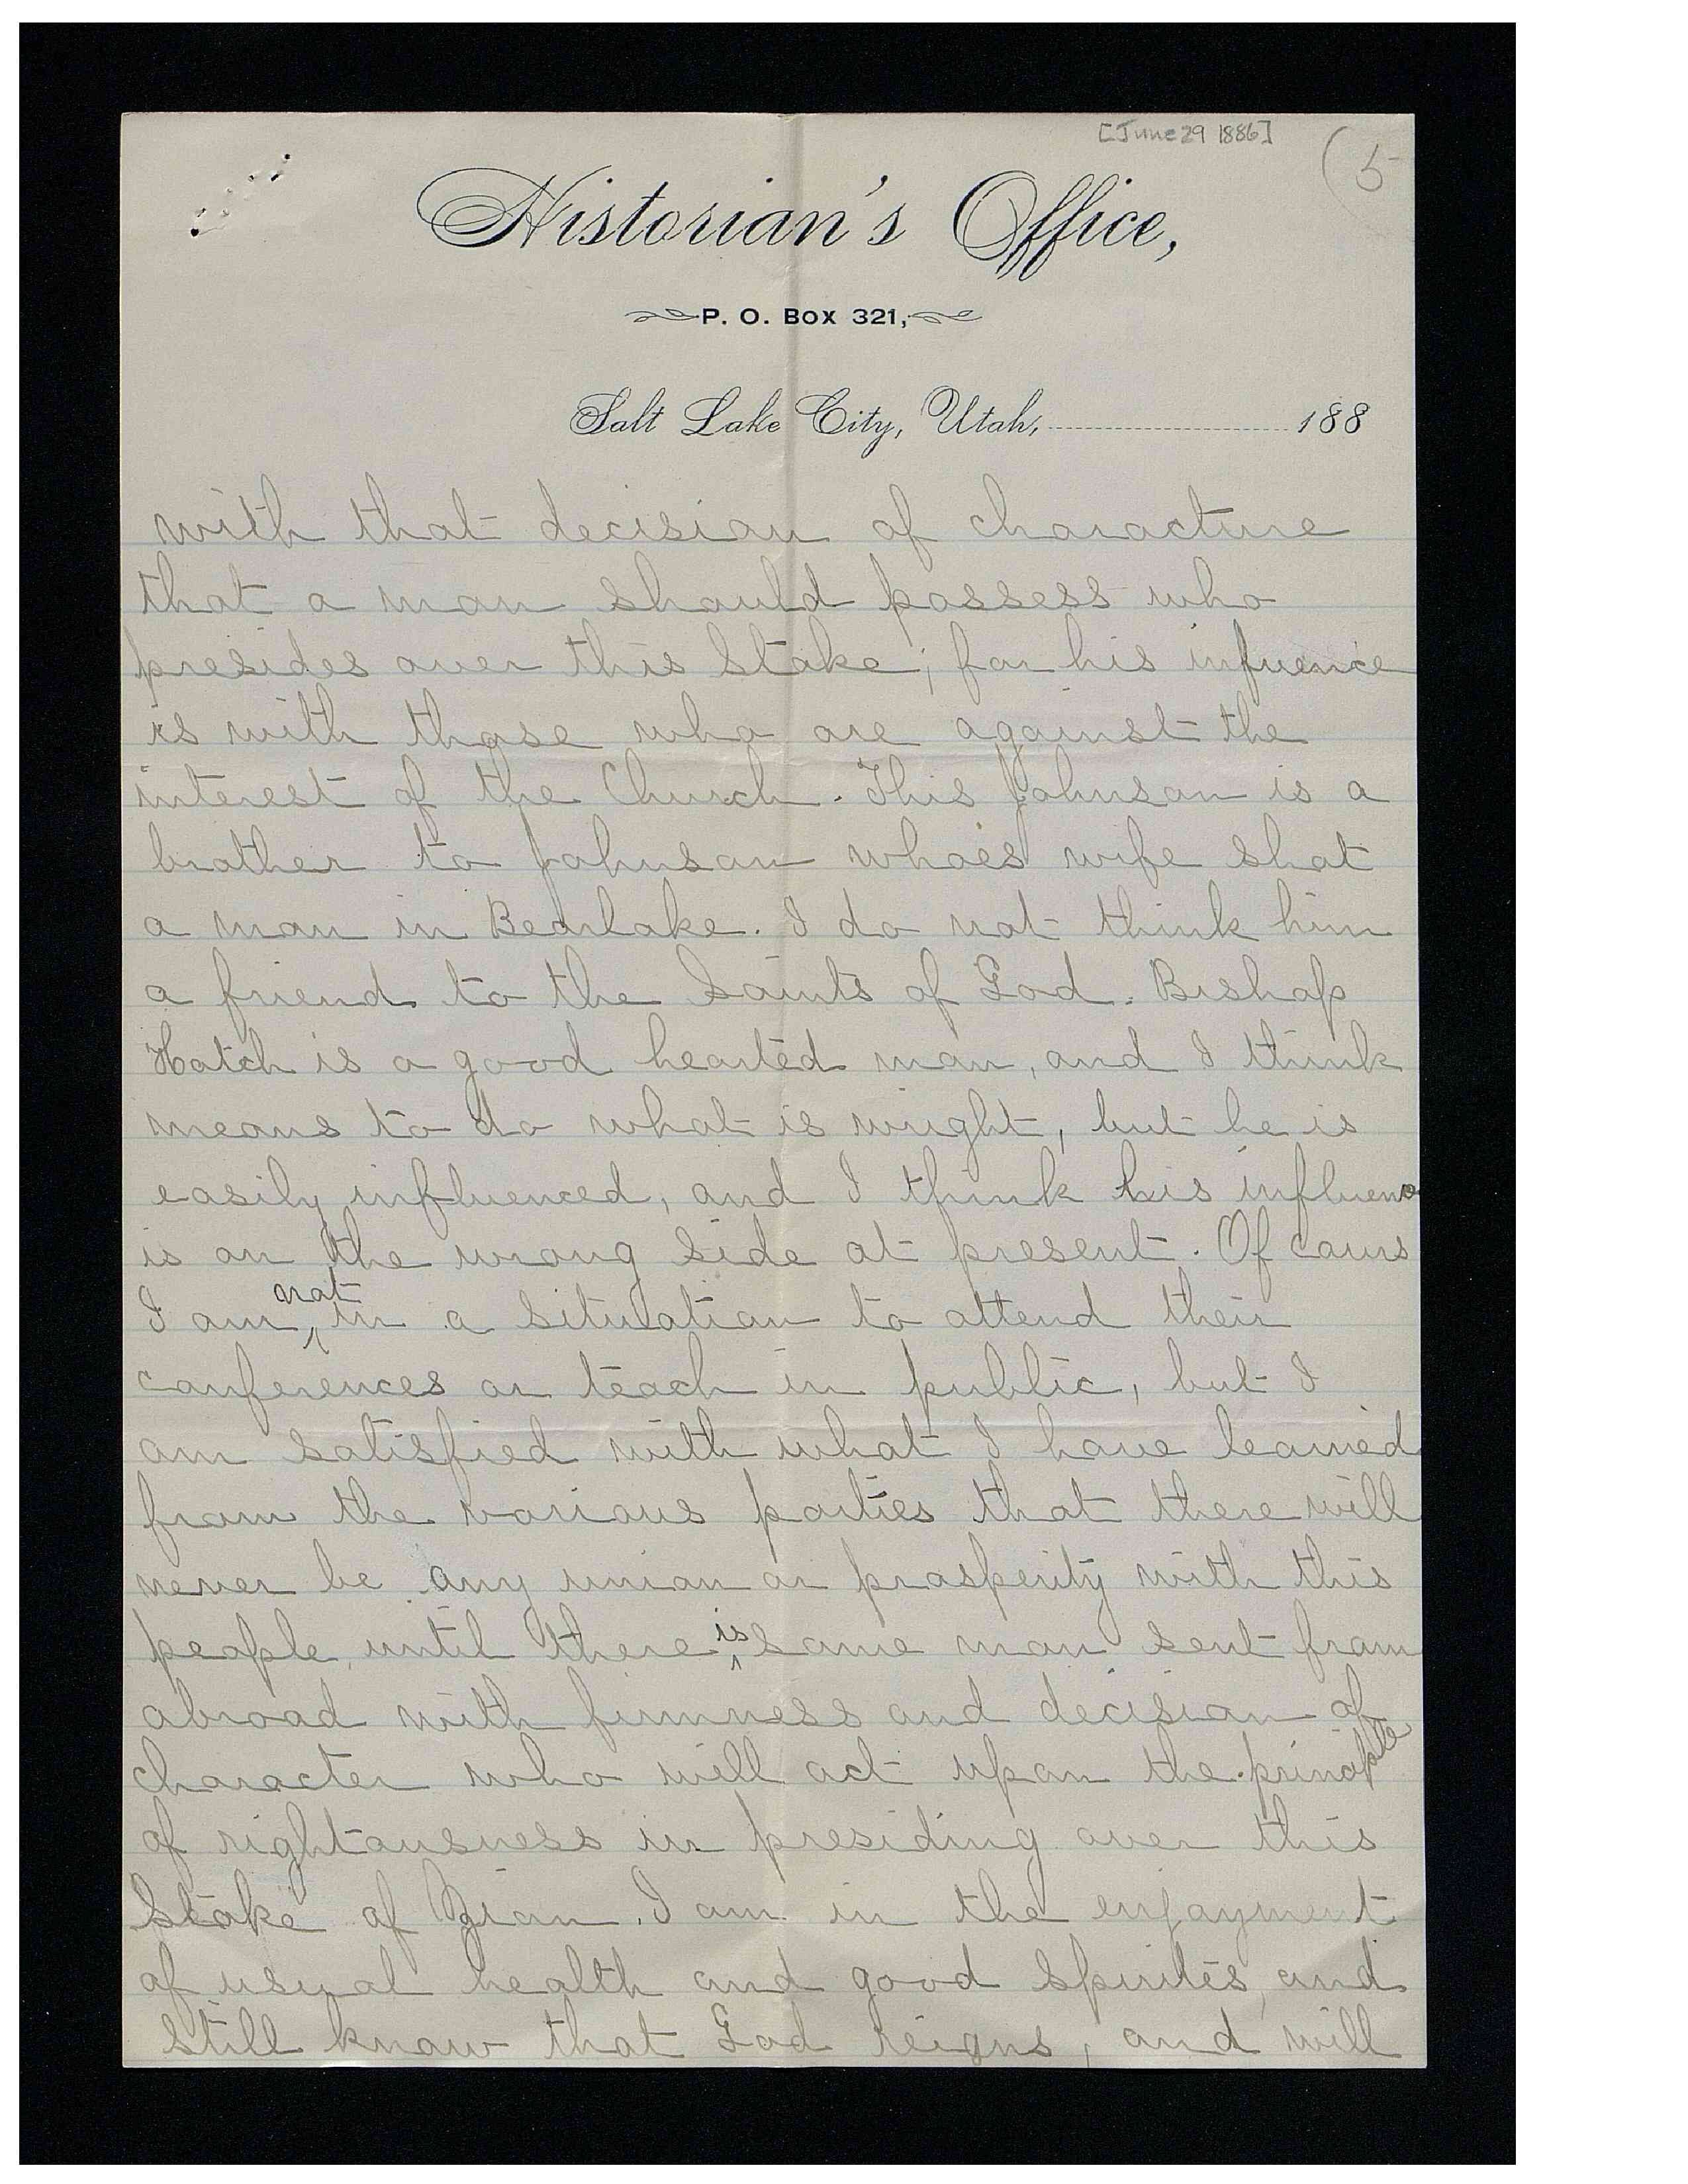 [June 29 1886]
(5
Historian's Office,
P. O. Box 321,
Salt Lake City, Utah, 188
with that decision of characture
that a man should possess who
presides over this Stake; for his infuence
is with those who are against the
interest of the Church. This Johnson is a
brother to Johnson whoes wife shot
a man in Bearlake. I do not think him
a friend to the Saints of God. Bishop
Hatch is a good hearted man, and I think
means to do what is wright, but he is
easily influenced, and I think his influenc
is on the wrong side at present. Of cours
not
I am in a situation to attend their
conferences or teach in public, but I
am satisfied with what I have learned
from the various parties that there will
never be any union or prosperity with this
people until there is some man sent from
abroad with firmness and decision of
character who will act upon the principle
of rightousness in presiding over this
Stake of Zion. I am in the enjoyment
of usual health and good spirites, and
still know that God reigns, and will